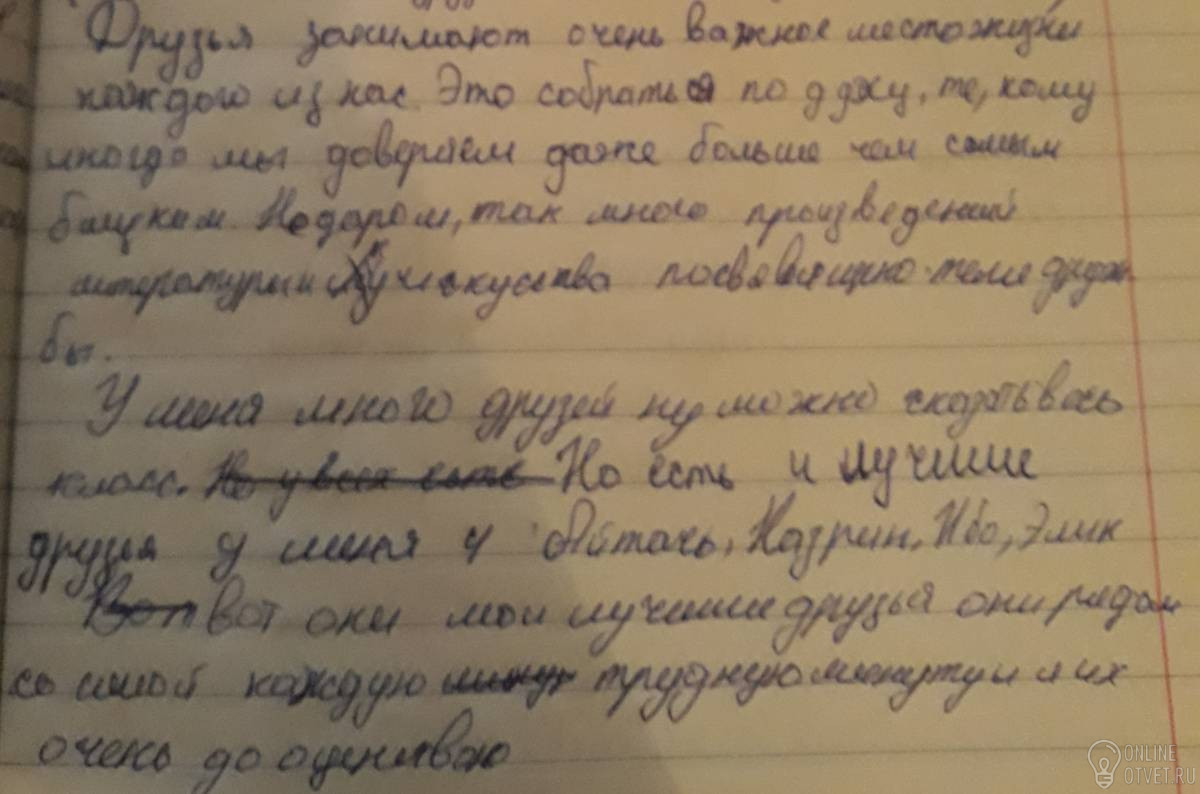 Друзья занимают очень важное место жизни
каждого из нас. Это собраться по д духу, те, кому
иногда мы доверяем даже больше чем самым
близким. Недаром, так много произведений
литературы и искусства посвовящено теме друж
бы.
У меня много друзей ну можно сказать весь
класс. Но у всех есть Но есть и лучшие
друзья у меня 4 Айтачь, Назрин, Ибо, Элик
Вот Вот они мои лучшие друзья они рядом
со мной каждую минут трудную минуту и я их
очень до оцениваю
ONLINE
OTVET.RU